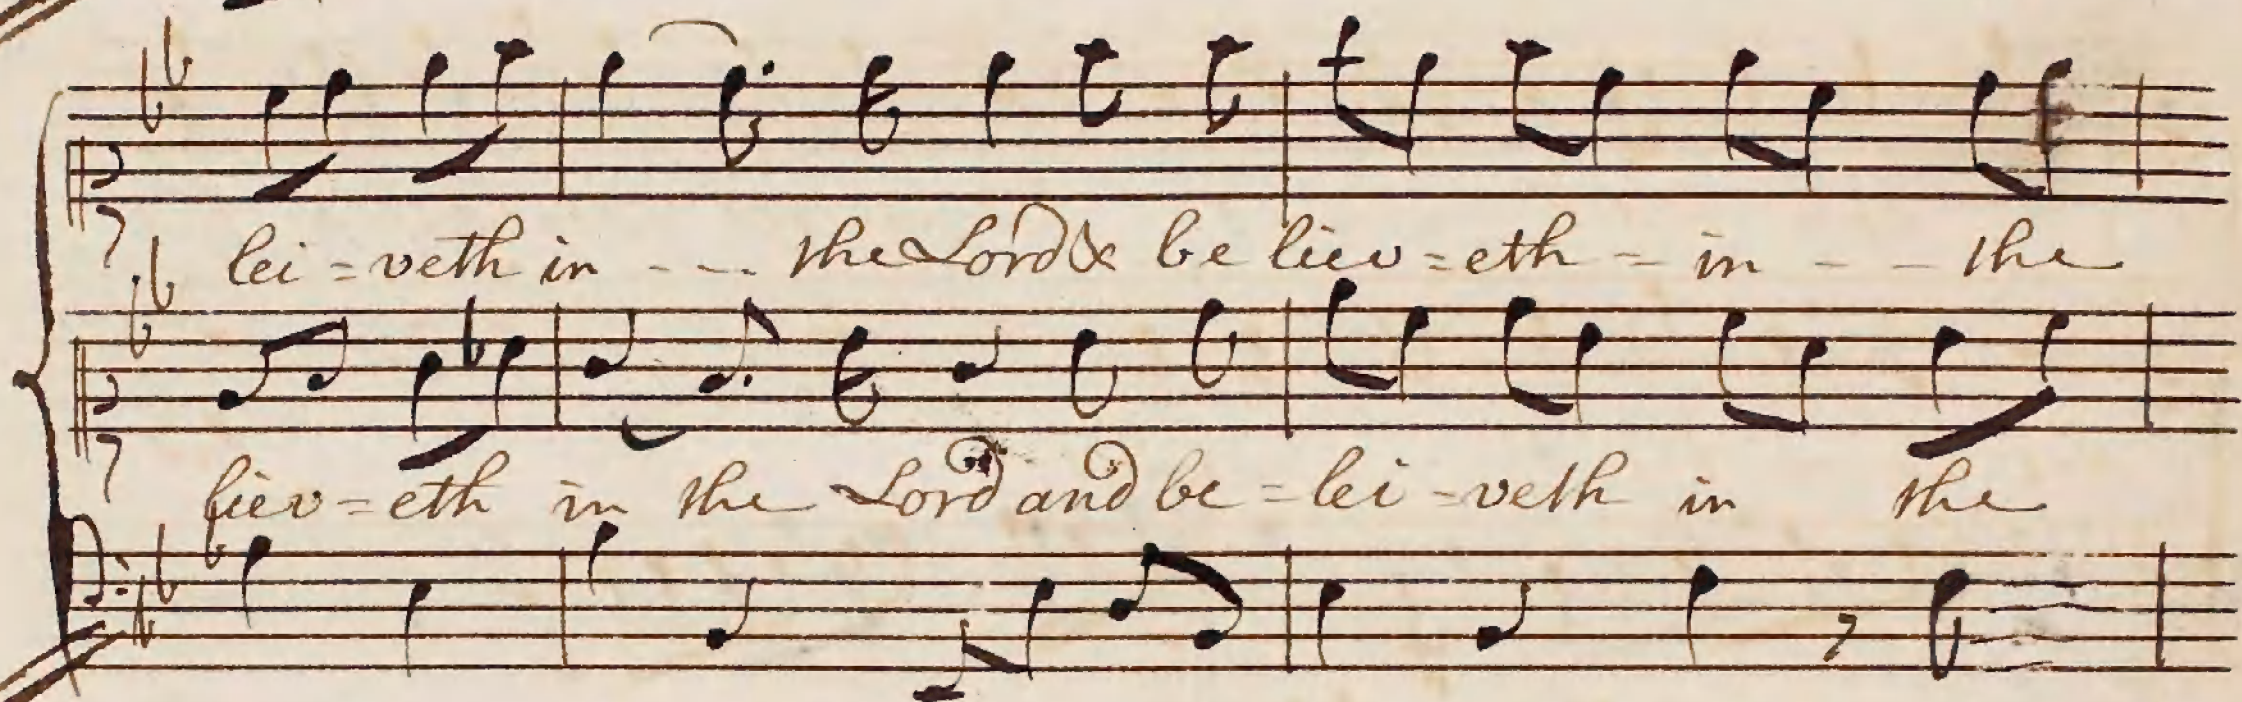 lei=veth in - - - the Lord & be liev=eth - in - - the
liev=eth in the Lord and be=lei-veth in the